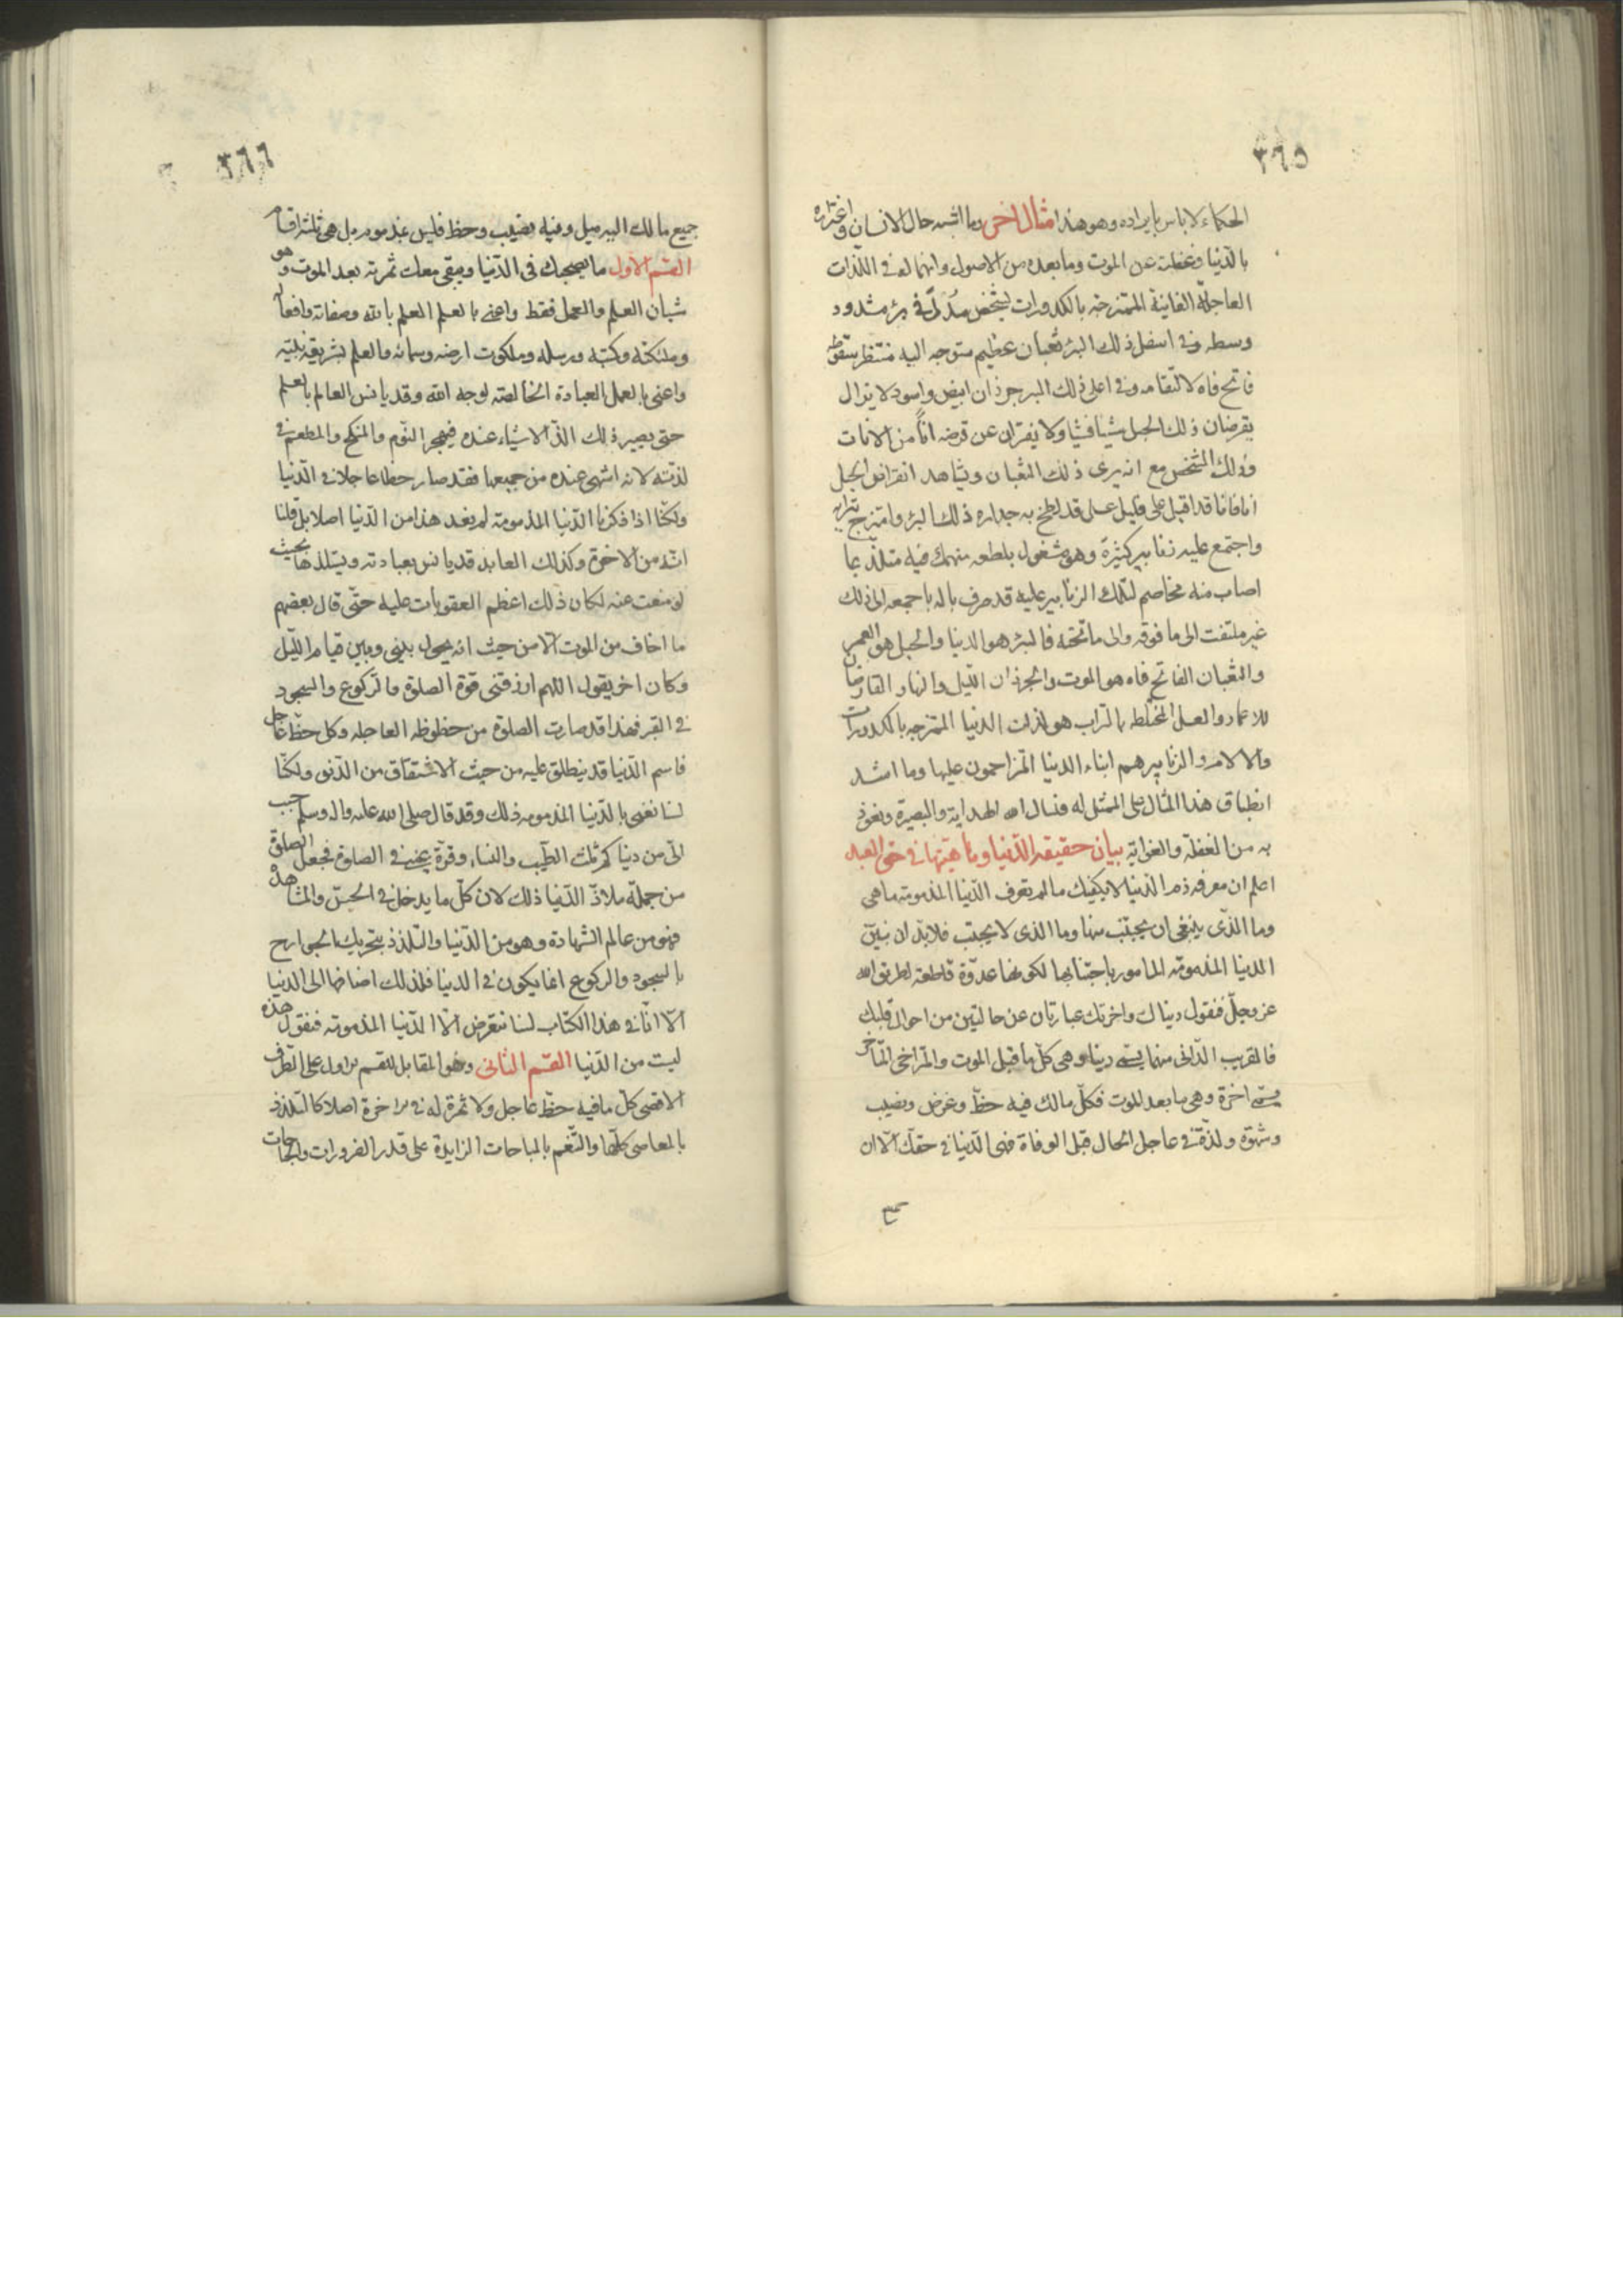 ٣٦٥
الحكماء لا باس بايراده وهو هذا مثال اخر وما اشبه حال الانسان واغتراره
بالدّنيا وغفلته عن الموت وما بعده من الاهوال وانهماكه فى اللّذات
العاجلة الفانية الممتزجه بالكدورات بشخص مُدلّى فى بئر مشدود
وسطه وفى اسفل ذلك البئر ثعبان عظيم متوجه اليه منتظر سقوطه
فاتح فاه لالتقامه وفى اعلى ذلك البئر جرذان ابيض واسود لا يزال
يقرضان ذلك الحبل شيئا فشيئا ولا يفتران عن قرضه اناً من الانات
وذلك الشخص مع انه يرى ذلك الثعبان ويشاهد انقراض الحبل
انا فانا قد اقبل على قليل عسل قد لطخ به جداره ذلك البئر وامتزج بترابه
واجتمع عليه زنابير كثيرة وهو مشغول بلطعه منهمك فيه متلذّ بما
اصاب منه مخاصم لتلك الزنابير عليه قد صرف باله باجمعه الى ذلك
غير ملتفت الى ما فوقه والى ما تحته فالبئر هو الدنيا والحبل هو العمر
والثعبان الفاتح فاه هو الموت والجرذان الليل والنهار القارضان
للاعمار والعسل المختلطه بالتراب هو لذات الدنيا الممتزجه بالكدورات
والالام والزنابير هم ابناء الدنيا المتزاحمون عليها وما اشد
انطباق هذا المثال على الممثل له فنسال الله الهداية والبصيرة ونعوذ
به من الغفلة والغواية بيان حقيقه الدّنيا وماهيّتها فى حق العبد
اعلم ان معرفه ذم الدّنيا لا يكفيك ما لم تعرف الدّنيا المذمومة ما هى
وما الذّى ينبغى ان يجتنب منها وما الذى لا يجتنب فلابدّ ان نبيّن
الدنيا المذمومه المامور باجتنابها لكونها عدوّة قاطعة لطريق الله
عز وجلّ فنقول دنياك واخرتك عبارتان عن حالتين من احوال قلبك
فالقريب الدّانى منهما يسمّى دنيا وهى كلّ ما قبل الموت والمتراخى المتاخر
يسمّى اخرة وهى ما بعد الموت فكلّ مالك فيه حظّ وغرض ونصيب
وشهوة ولذّة فى عاجل الحال قبل الوفاة فهى الدّنيا فى حقك الّا ان
٣٦٦
جميع مالك اليه ميل وفيه نصيب وحظ فليس بمذموم بل هى ثلثة اقسام
القسم الاول ما يصحبك فى الدّنيا ويبقى معك ثمرته بعد الموت وهو
شيئان العلم والعمل فقط واعنى بالعلم العلم بالله وصفاته وافعاله
وملئكته وكتبه ورسله وملكوت ارضه وسمائه والعلم بشريعة نبيّه
واعنى بالعمل العبادة الخالصه لوجه الله وقد يانس العالم بالعلم
حتى يصير ذلك الذّ الاشياء عنده فيهجر النّوم والمنكح والمطعم فى
لذّته لانه اشهى عنده من جميعها فقد صار حظا عاجلا فى الدّنيا
ولكنّا اذا ذكرنا الدّنيا المذمومة لم نعد هذا من الدّنيا اصلا بل قلنا
انّه من الاخرة وكذلك العابد قد يانس بعبادته ويستلذّها بحيث
لو منعت عنه لكان ذلك اعظم العقوبات عليه حتّى قال بعضهم
ما اخاف من الموت الّا من حيث انه يحول بينى وبين قيام اللّيل
وكان اخر يقول اللهم ارزقنى قوة الصلوة والركوع والسجود
فى القبر فهذا قد صارت الصلوة من حظوظه العاجله وكل حظّ عاجل
فاسم الدّنيا قد ينطلق عليه من حيث الاشتقاق من الدّنو ولكنّا
لسنا نعنى بالدّنيا المذمومه ذلك وقد قال صلى الله عليه واله وسلم حبب
الىّ من دنياكم ثلث الطّيب والنساء وقرّة عينى فى الصلوة فجعل الصلوة
من جملة ملاذّ الدّنيا ذلك لان كلّ ما يدخل فى الحسّ والمشاهدة
فهو من عالم الشهادة وهو من الدّنيا والتّلذذ بتحريك الجوارح
بالسجود والركوع انما يكون فى الدنيا فلذلك اضافها الى الدنيا
الّا انّا فى هذا الكتاب لسنا نتعرض الّا الدّنيا المذمومة فنقول هذه
ليست من الدّنيا القسم الثانى وهو المقابل للقسم الاول على الطّرف
الاقصى كلّ ما فيه حظّ عاجل ولا ثمرة له فى الاخرة اصلا كالتلذذ
بالمعاصى كلّها والتّنعّم بالمباحات الزايدة على قدر الضرورات والحاجات